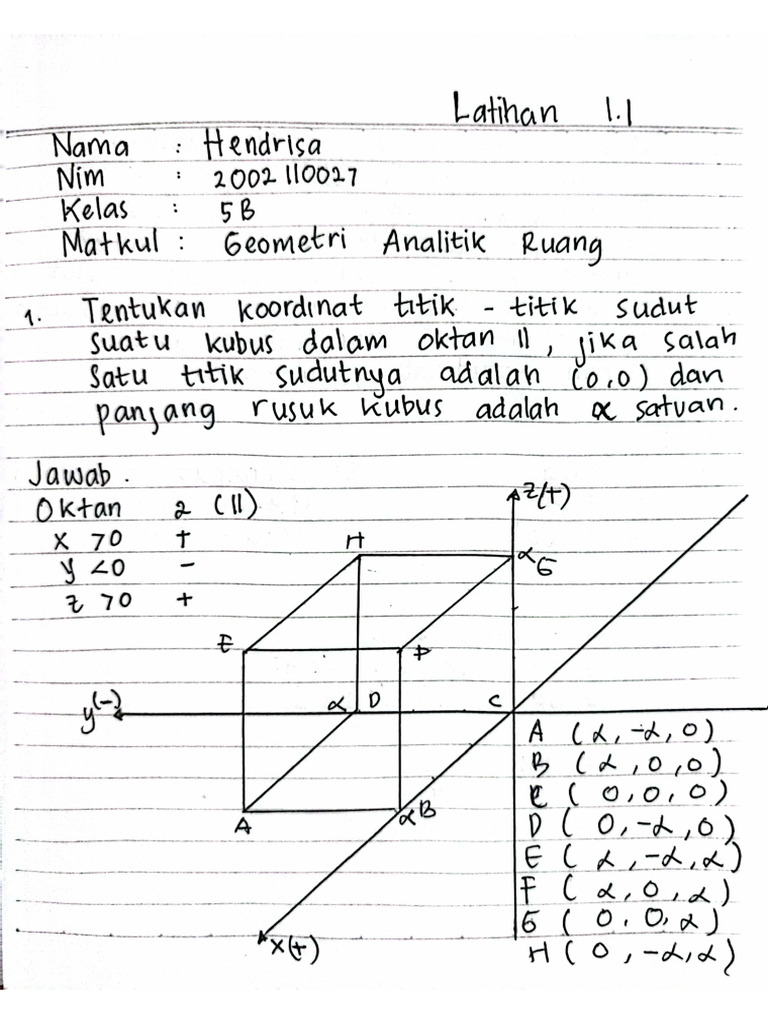 Latihan 1.1
Nama : Hendrisa
Nim : 2002110027
Kelas : 5B
Matkul : Geometri Analitik Ruang
1. Tentukan koordinat titik - titik sudut
suatu kubus dalam oktan II, jika salah
satu titik sudutnya adalah (0,0) dan
panjang rusuk kubus adalah α satuan.
Jawab.
Oktan 2 (II)
x >0 +
y <0 -
z >0 +
z(+)
H
α G
E
F
y(-)
α D
C
A
α B
x(+)
A (α, -α, 0)
B (α, 0, 0)
C (0, 0, 0)
D (0, -α, 0)
E (α, -α, α)
F (α, 0, α)
G (0, 0, α)
H (0, -α, α)